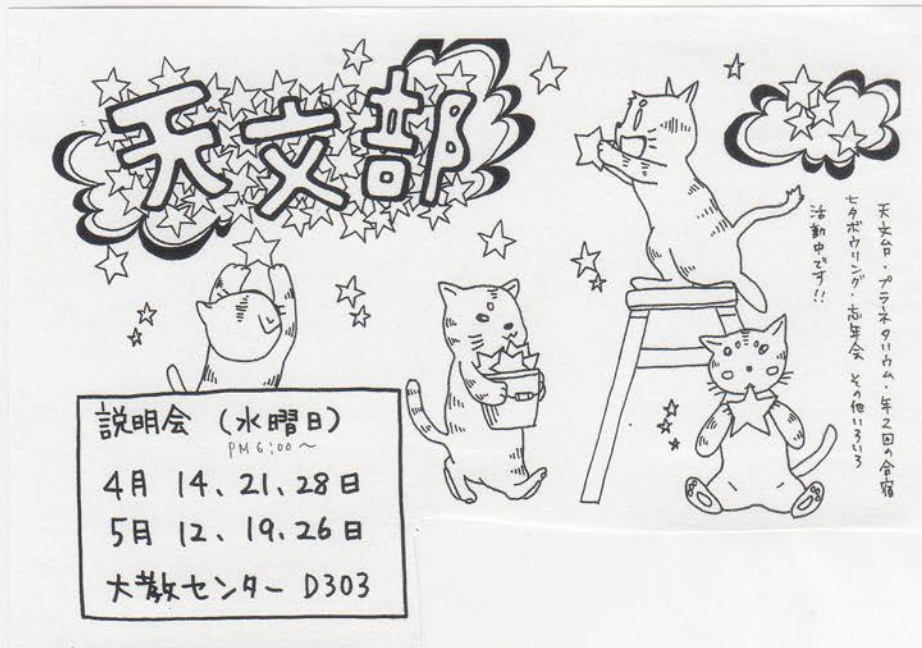 天文部
天文台・プラネタリウム・年2回の合宿
七夕ボウリング・忘年会 その他いろいろ
活動中です!!
説明会 (水曜日)
PM6:00〜
4月 14、21、28日
5月 12、19、26日
大教センター D303